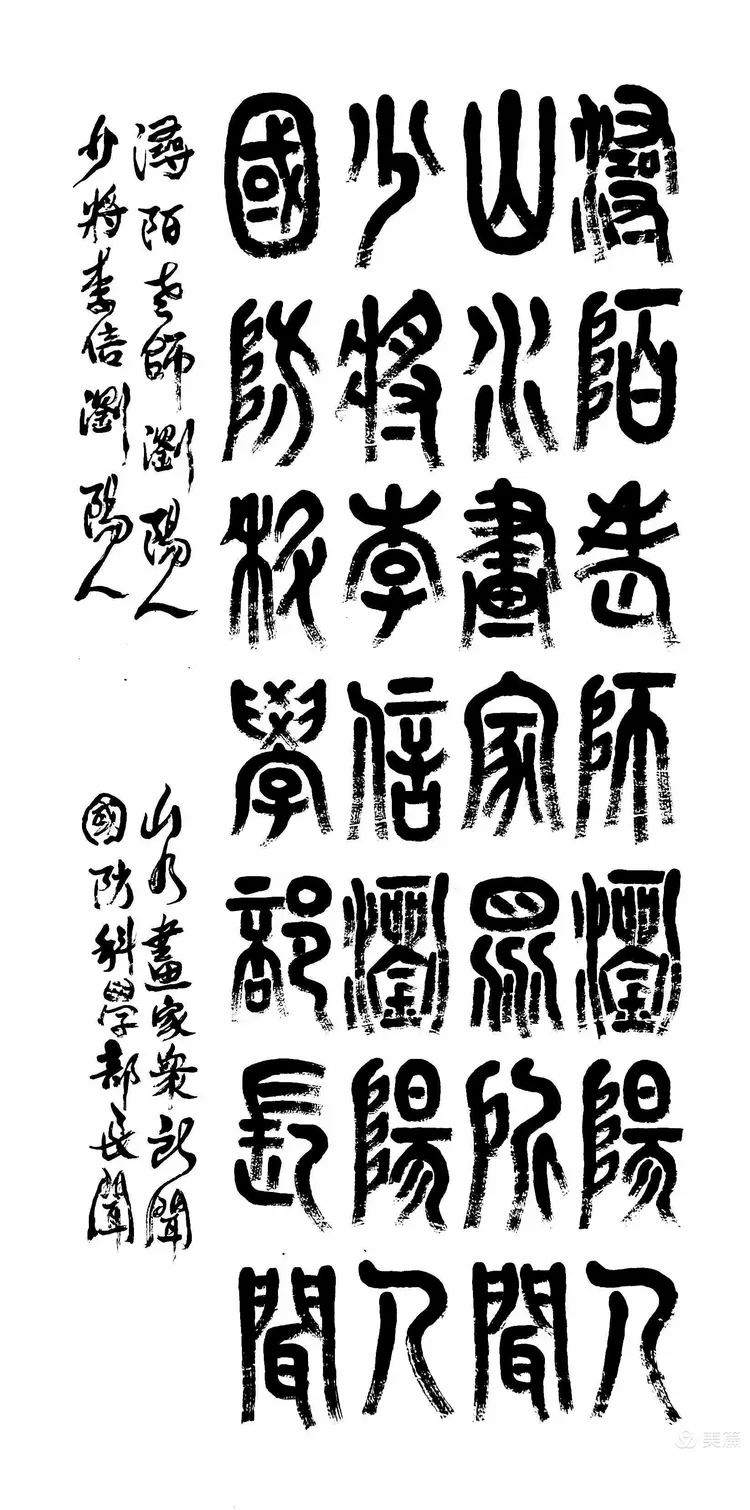 潯陌老師瀏陽人
山水畫家眾所聞
少將李信瀏陽人
國防科學部長聞
潯陌老師瀏陽人
山水畫家衆所聞
少將李信瀏陽人
國防科學部長聞
美篇